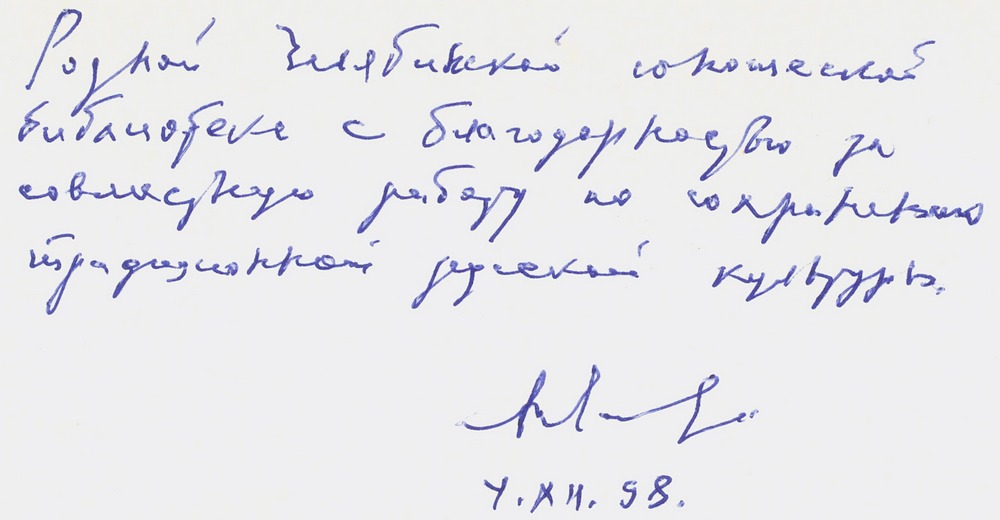 Родной Челябинской юношеской
библиотеке с благодарностью за
совместную работу по сохранению
традиционной русской культуры.
4.XII.98.